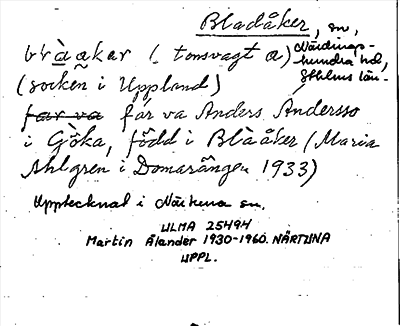 Bladåker, sn,
Närdinghundra hd,
Sthlms län.
blàaker (tonsvagt a)
(socken i Uppland)
far va får va Anders Andersso
i Göka, född i Blàåker (Maria
Ahlgren i Domarängen 1933)
Upptecknat i Närtuna sn.
ULMA 25494
Martin Ålander 1930-1960. NÄRTUNA
UPPL.